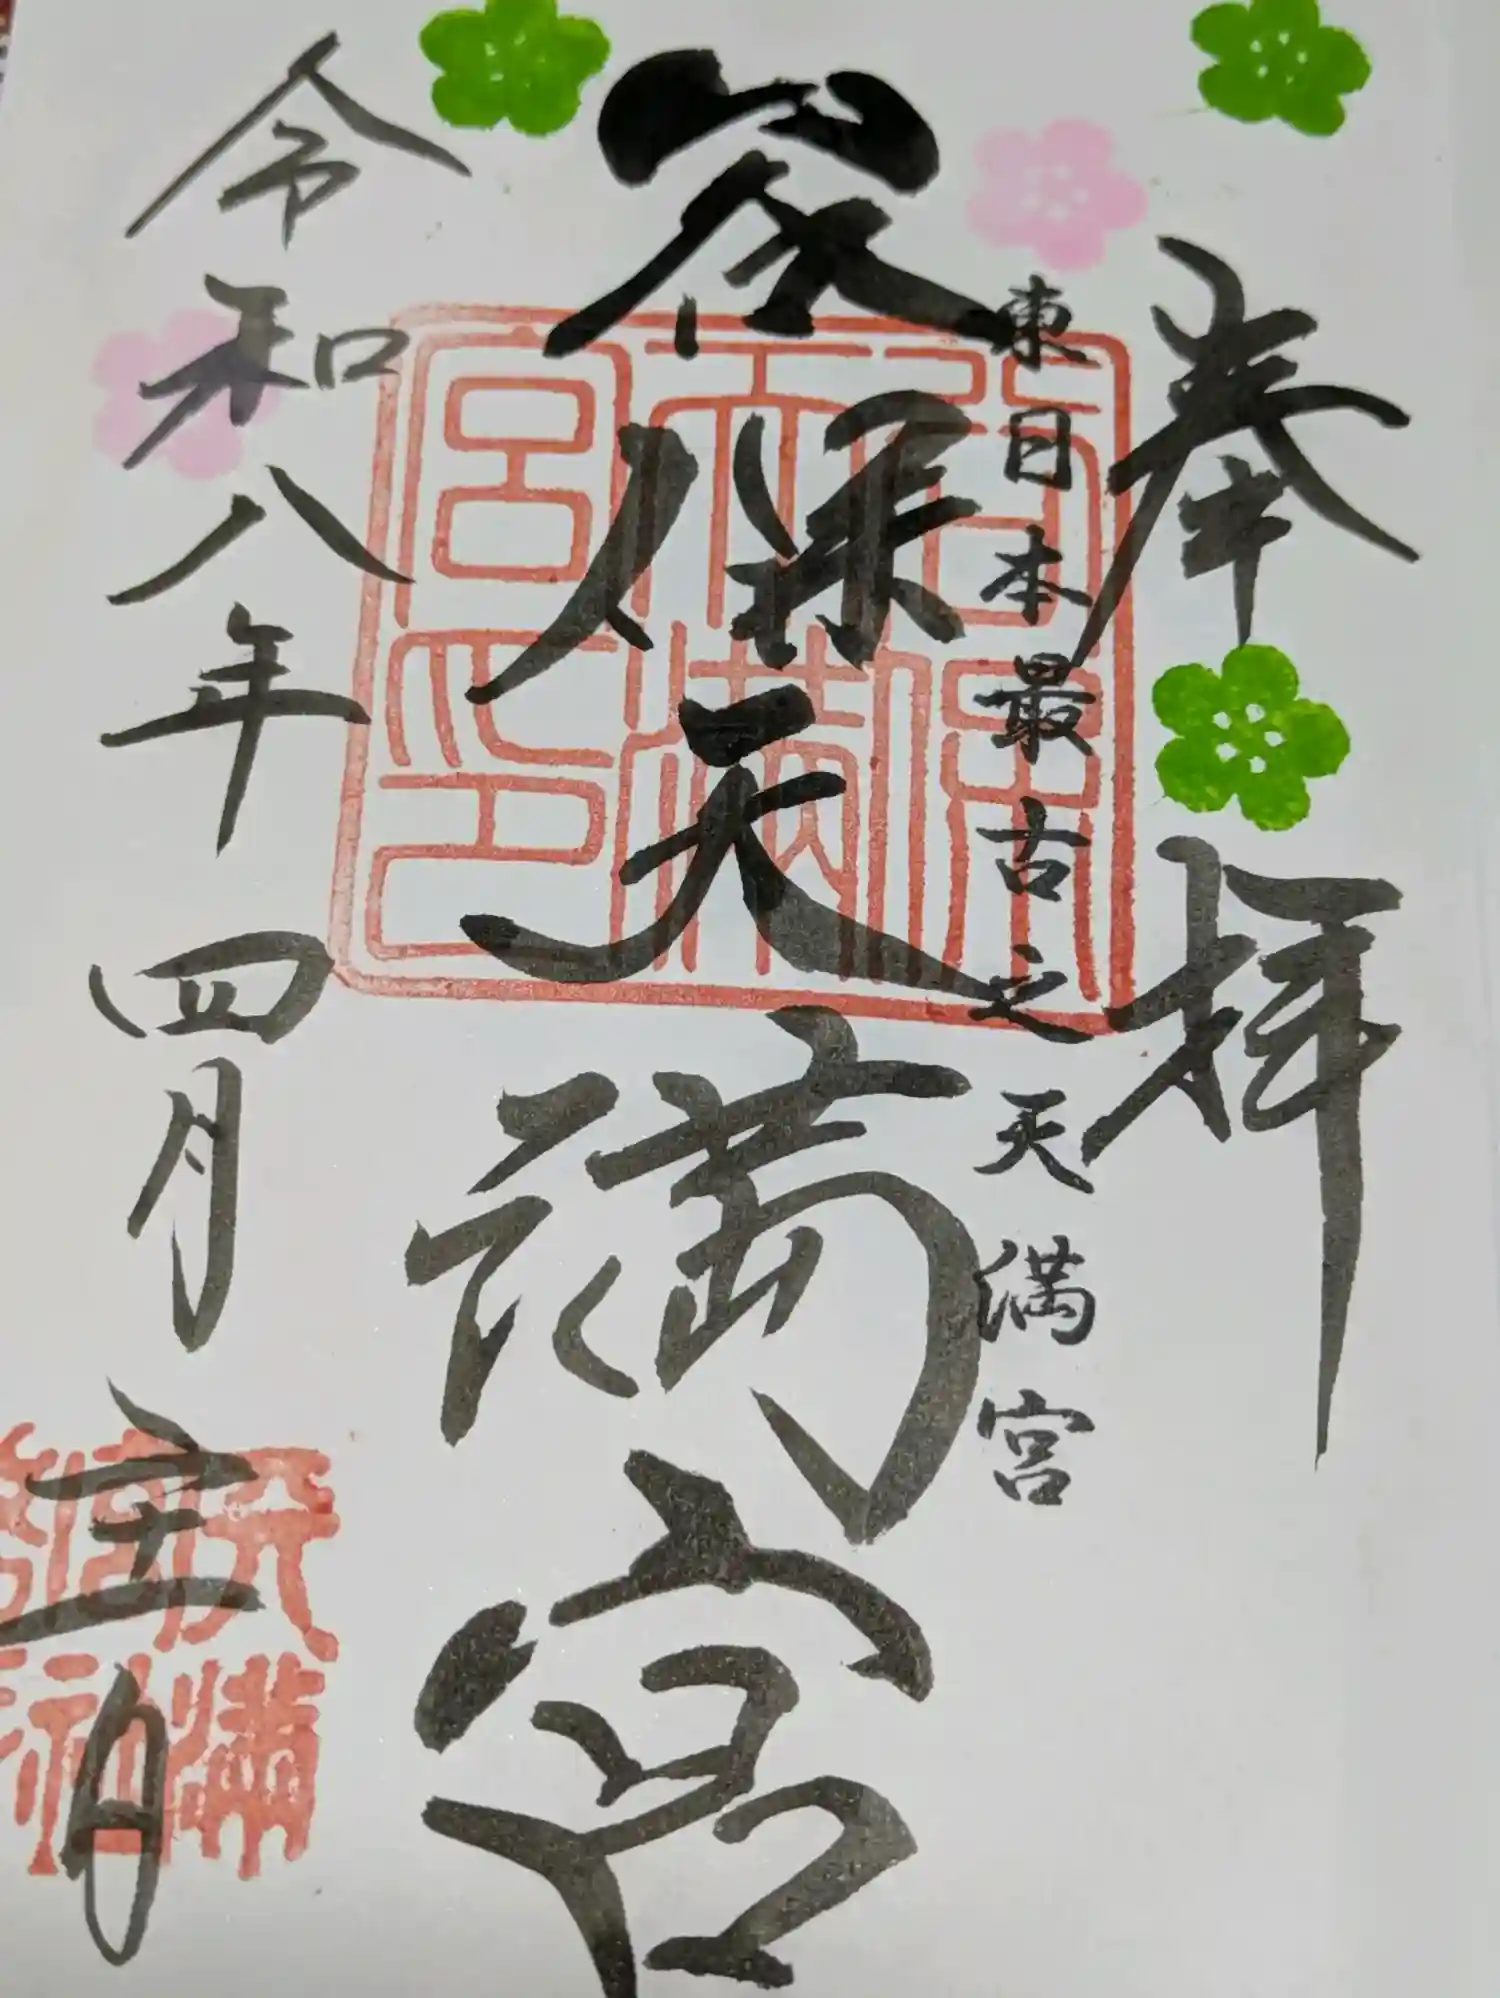 奉拝
東日本最古之天満宮
谷保天満宮
令和八年四月 日
谷保
天満
宮印
天満